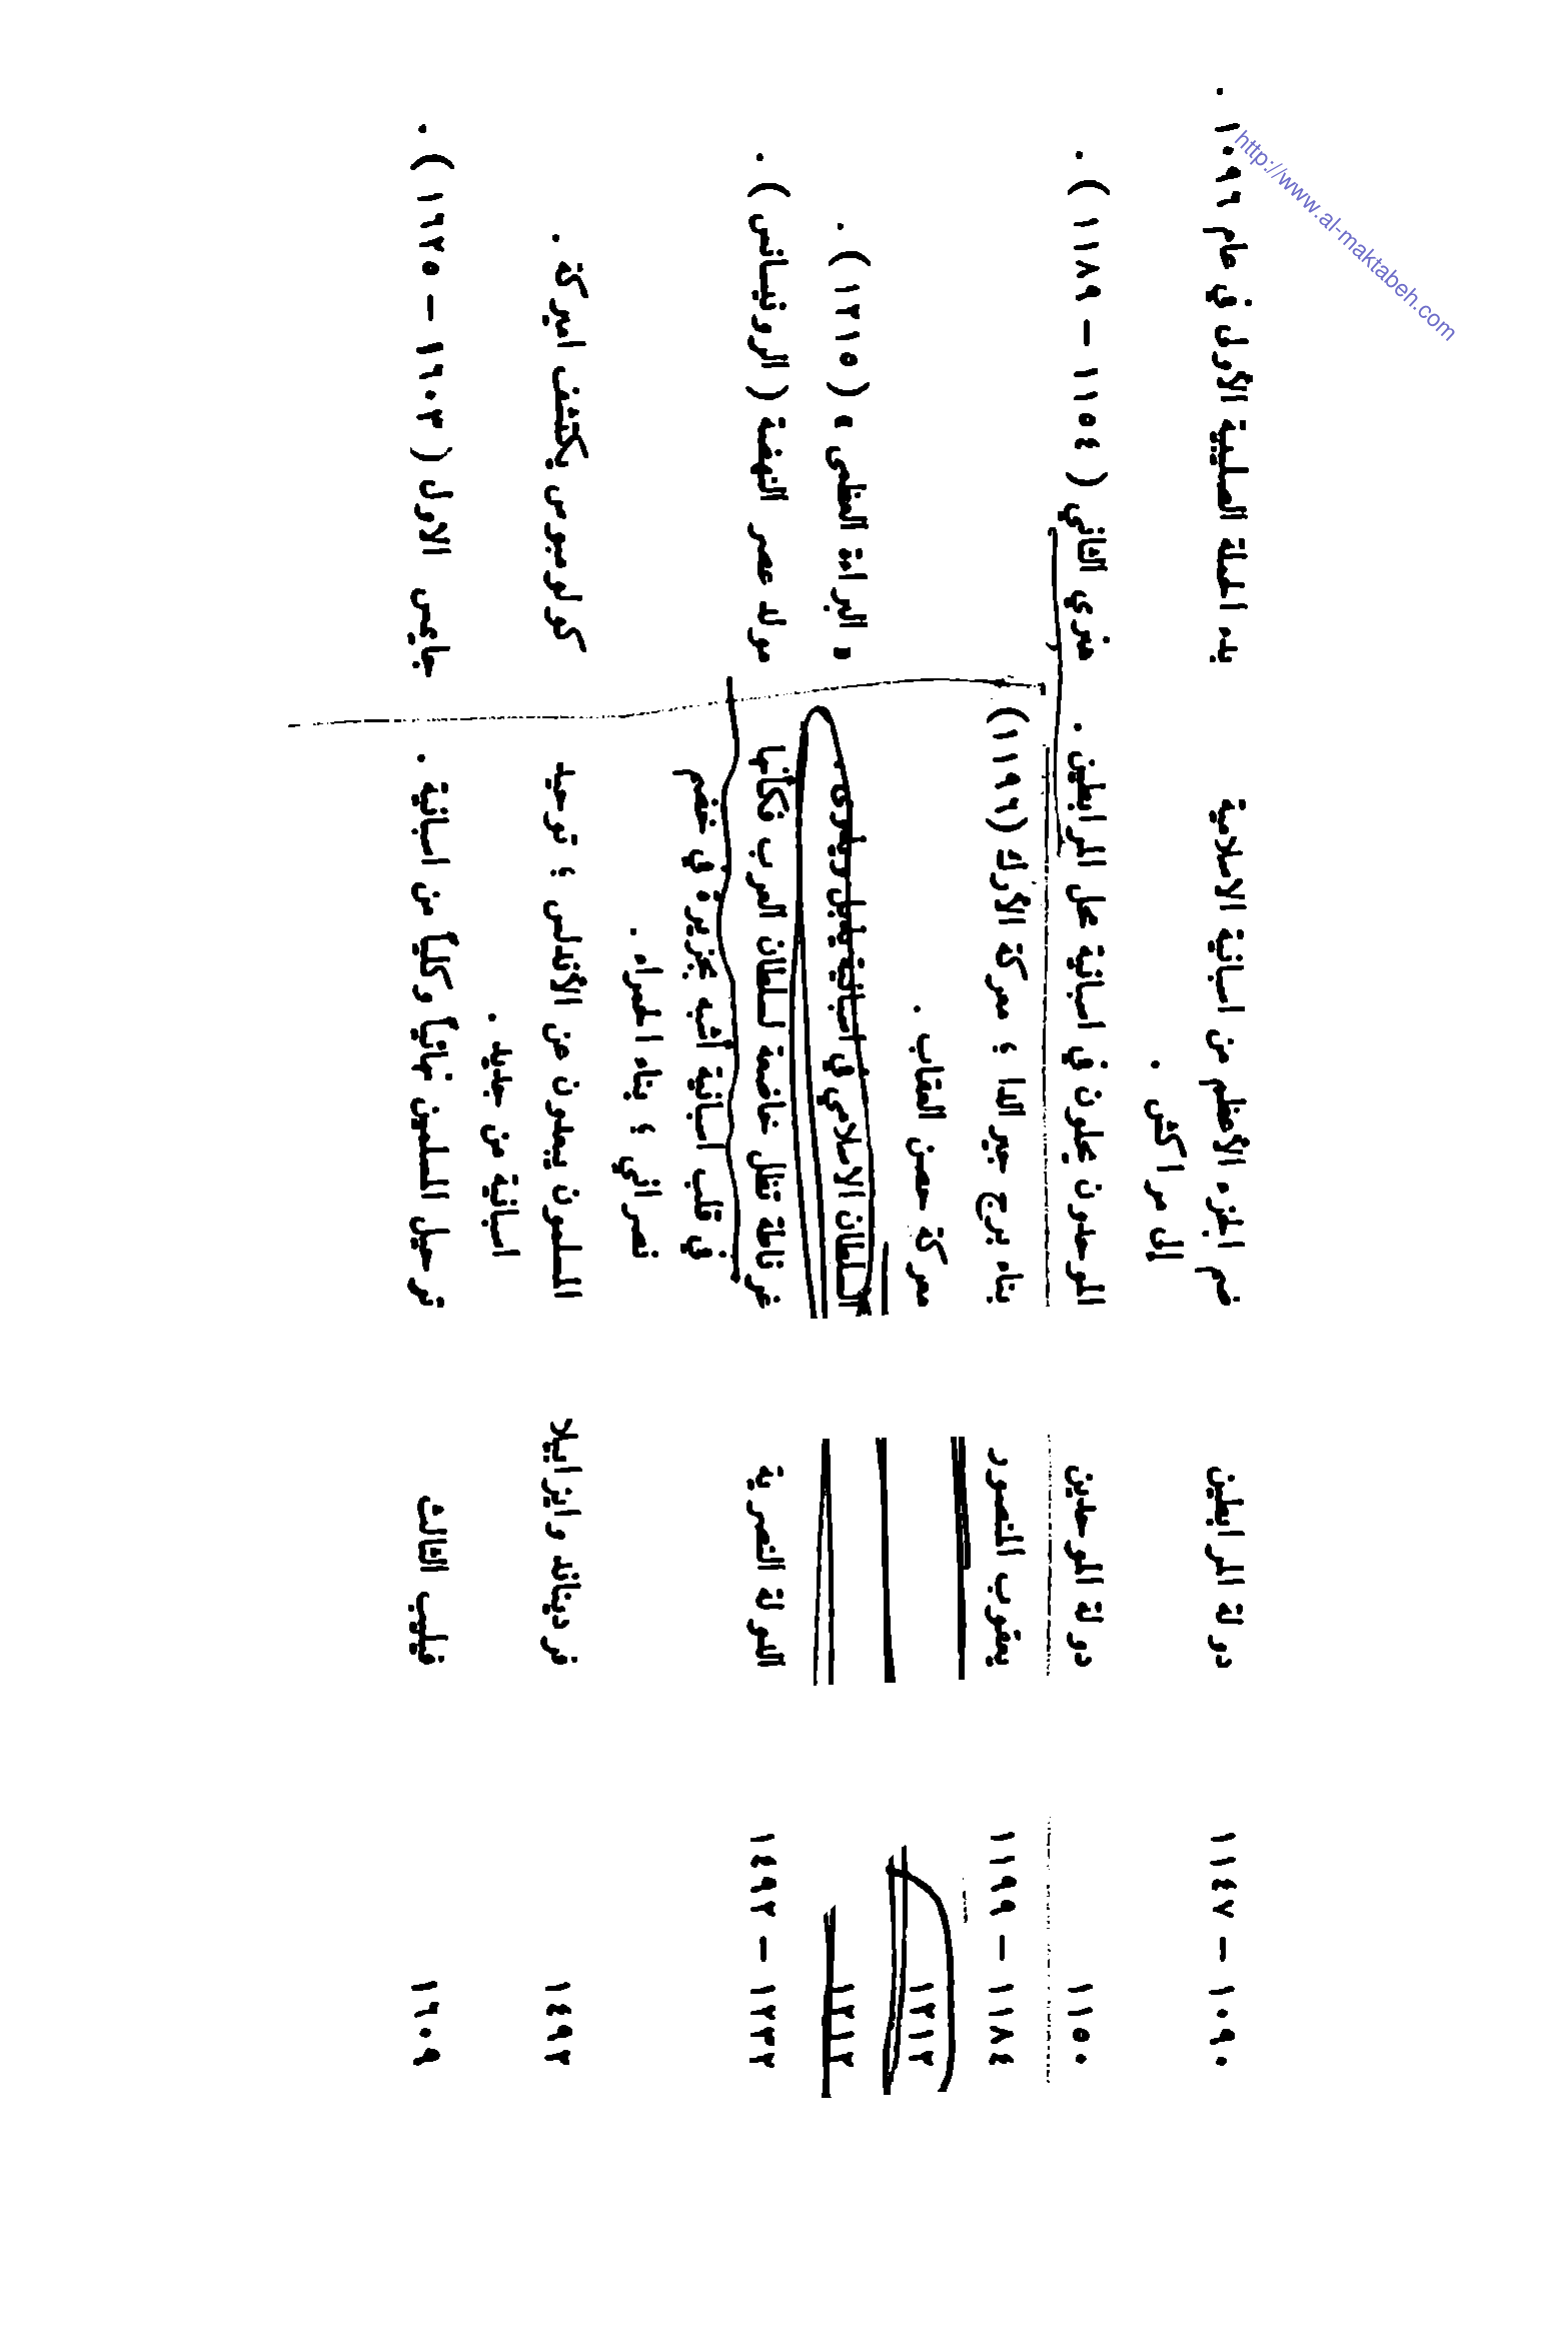 ١٠٩٠ – ١١٤٧ دولة المرابطين ضم الجزء الأعظم من اسبانية الاسلامية بدء الحملة الصليبية الأولى في عام ١٠٩٦ .
إلى مراكش .
١١٥٠ دولة الموحدين الموحدون يحلون في اسبانية محل المرابطين . هنري الثاني ( ١١٥٤ – ١١٨٩ ) .
١١٨٤ – ١١٩٩ يعقوب المنصور بناء برج جير الدا ؛ معركة الأرك (١١٩٦)
١٢١٢ معركة حصن العقاب .
١٢١٢ السلطان الاسلامي في اسبانية يذبل ويذوى . « البراءة العظمى » ( ١٢١٥ ) .
١٢٣٢ – ١٤٩٢ الدولة النصرية غرناطة تظل خاضعة لسلطان العرب فكأنها مولد عصر النهضة ( الرونيسانس ) .
في قلب اسبانية أشبه بجزيرة في خضم
نصراني ؛ بناء الحمراء .
١٤٩٢ فرديناند وايزابيلا المسلمون يبعدون عن الأندلس ؛ توحيد كولومبوس يكتشف اميركة .
اسبانية من جديد .
١٦٠٩ فيليب الثالث ترحيل المسلمين نهائياً وكلياً من اسبانية . جايمس الاول ( ١٦٠٣ – ١٦٢٥ ) .
http://www.al-maktabeh.com